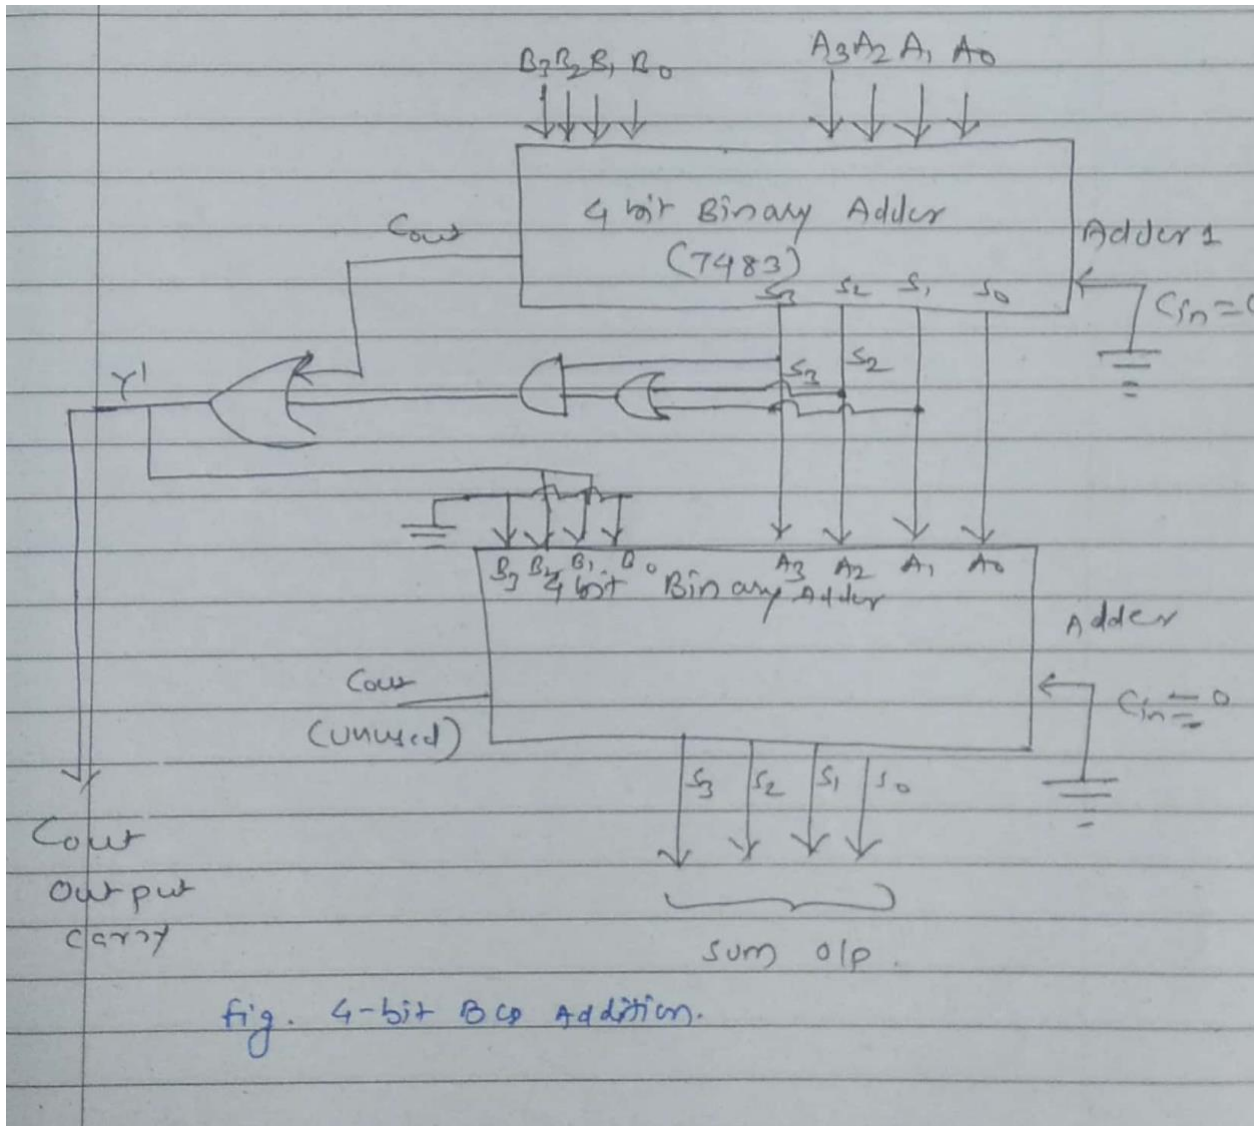 B3 B2 B1 B0 A3 A2 A1 A0
4 bit Binary Adder
(7483)
Cout
Adder 1
S3 S2 S1 S0
Cin=
S3 S2
Y'
B3 B2 B1 B0 A3 A2 A1 A0
4 bit Binary Adder
Adder
Cout
(unused)
Cin = 0
S3 S2 S1 S0
Cout
Output
carry
Sum o/p.
fig. 4-bit BCD Addition.